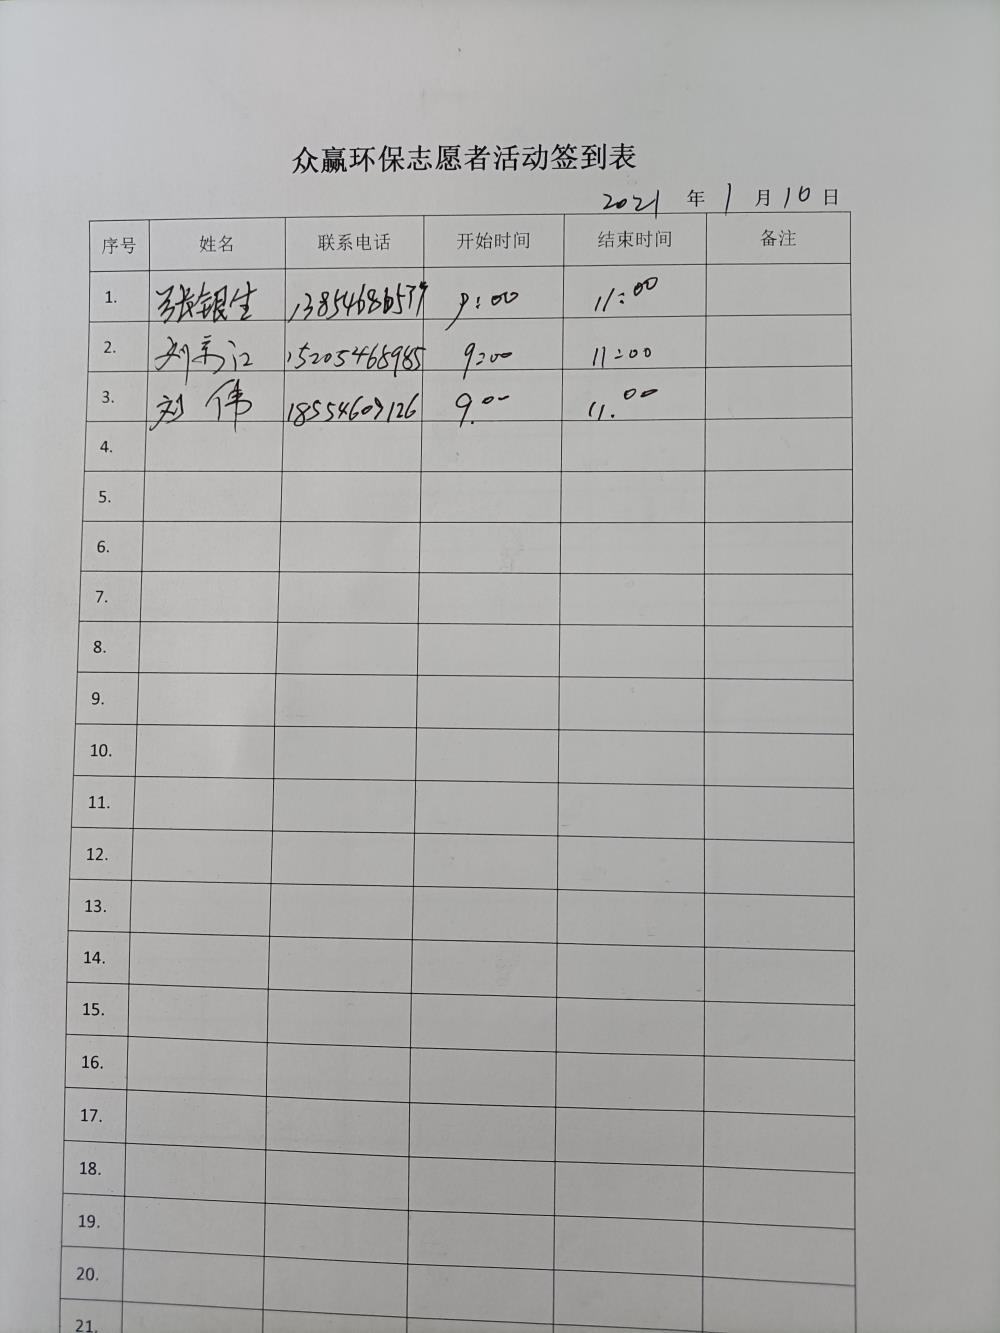 众赢环保志愿者活动签到表
2021 年 1 月 10 日
序号 姓名 联系电话 开始时间 结束时间 备注
1. 张银生 13854686579 9:00 11:00
2. 刘 江 15205468985 9:00 11:00
3. 刘伟 18554607126 9.00 11.00
4.
5.
6.
7.
8.
9.
10.
11.
12.
13.
14.
15.
16.
17.
18.
19.
20.
21.